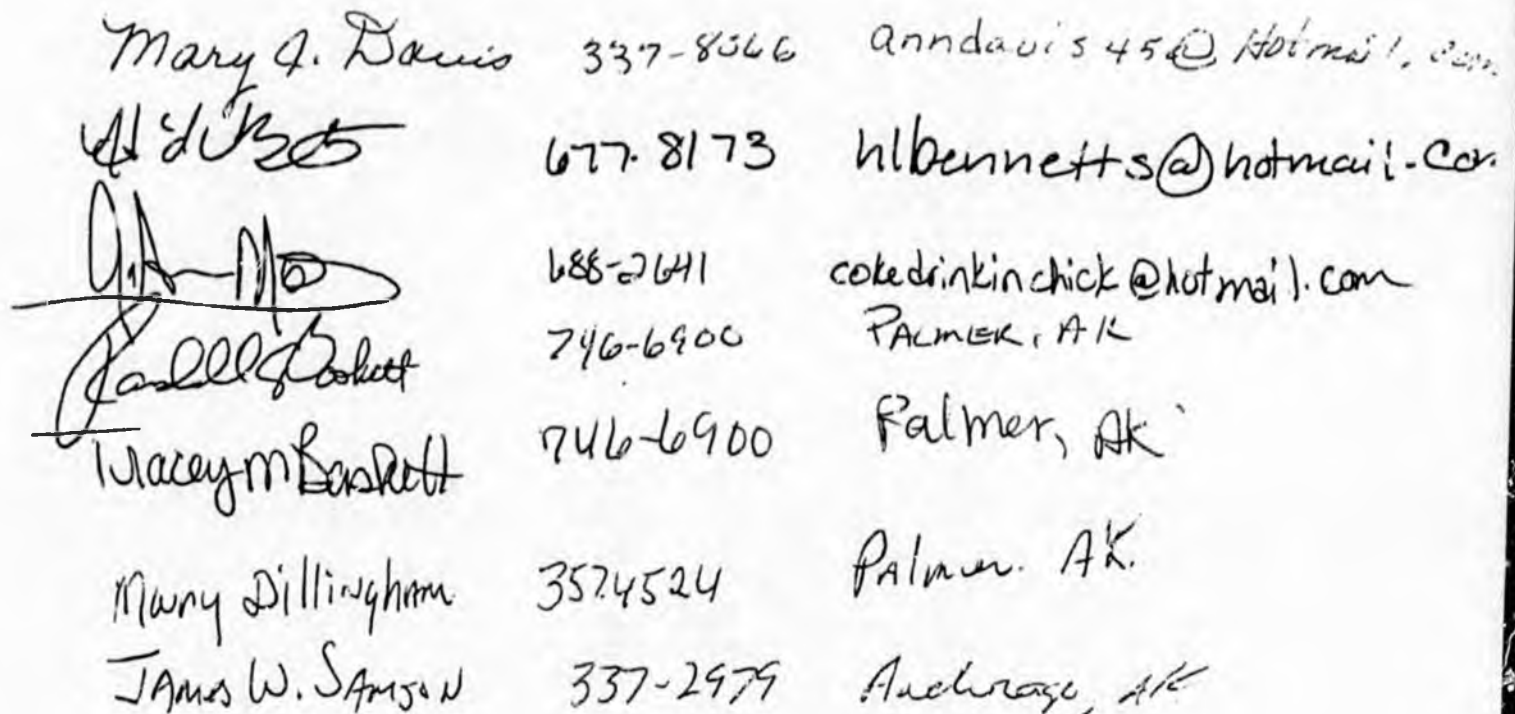 Mary J. Davis 337-8566 anndavis45@Hotmail.com
677-8173 hlbennetts@hotmail.com
688-2641 cokedrinkinchick@hotmail.com
746-6900 PALMER, AK
Tracey M Baskett 746-6900 Palmer, AK
Mary Dillingham 357-4524 Palmer. AK.
JAMES W. SAMSON 337-2979 Anchorage, AK